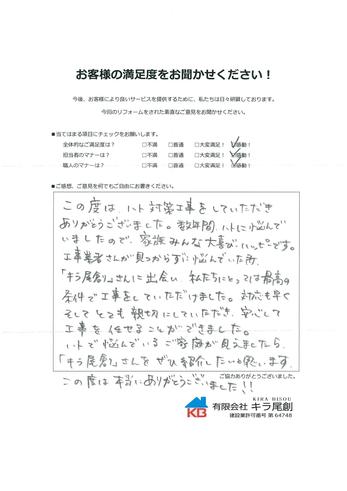 お客様の満足度をお聞かせください！
今後、お客様により良いサービスを提供するために、私たちは日々研鑽しております。
今回のリフォームをされた素直なご意見をお聞かせください。
■当てはまる項目にチェックをお願いします。
全体的なご満足度は？ □不満 □普通 □大変満足！ ☑感動！
担当者のマナーは？ □不満 □普通 □大変満足！ ☑感動！
職人のマナーは？ □不満 □普通 □大変満足！ ☑感動！
■ご感想、ご意見を何でもご自由にお書きください。
この度は、ハト対策工事をしていただき
ありがとうございました。数年間、ハトに悩んで
いましたので、家族みんな大喜び、ハッピーです。
工事業者さんが見つからずに悩んでいた所、
「キラ尾創」さんに出会い、私たちにとっては最高の
条件で工事をしていただけました。対応も早く
そしてとても親切にしていただき、安心して
工事を任せることができました。
ハトで悩んでいるご家庭が見えましたら、
「キラ尾創」さんをぜひ紹介したいと思います。
この度は本当にありがとうございました!!
ご協力ありがとうございました。
KIRA BISOU
KB 有限会社 キラ尾創
建設業許可番号 第 64748